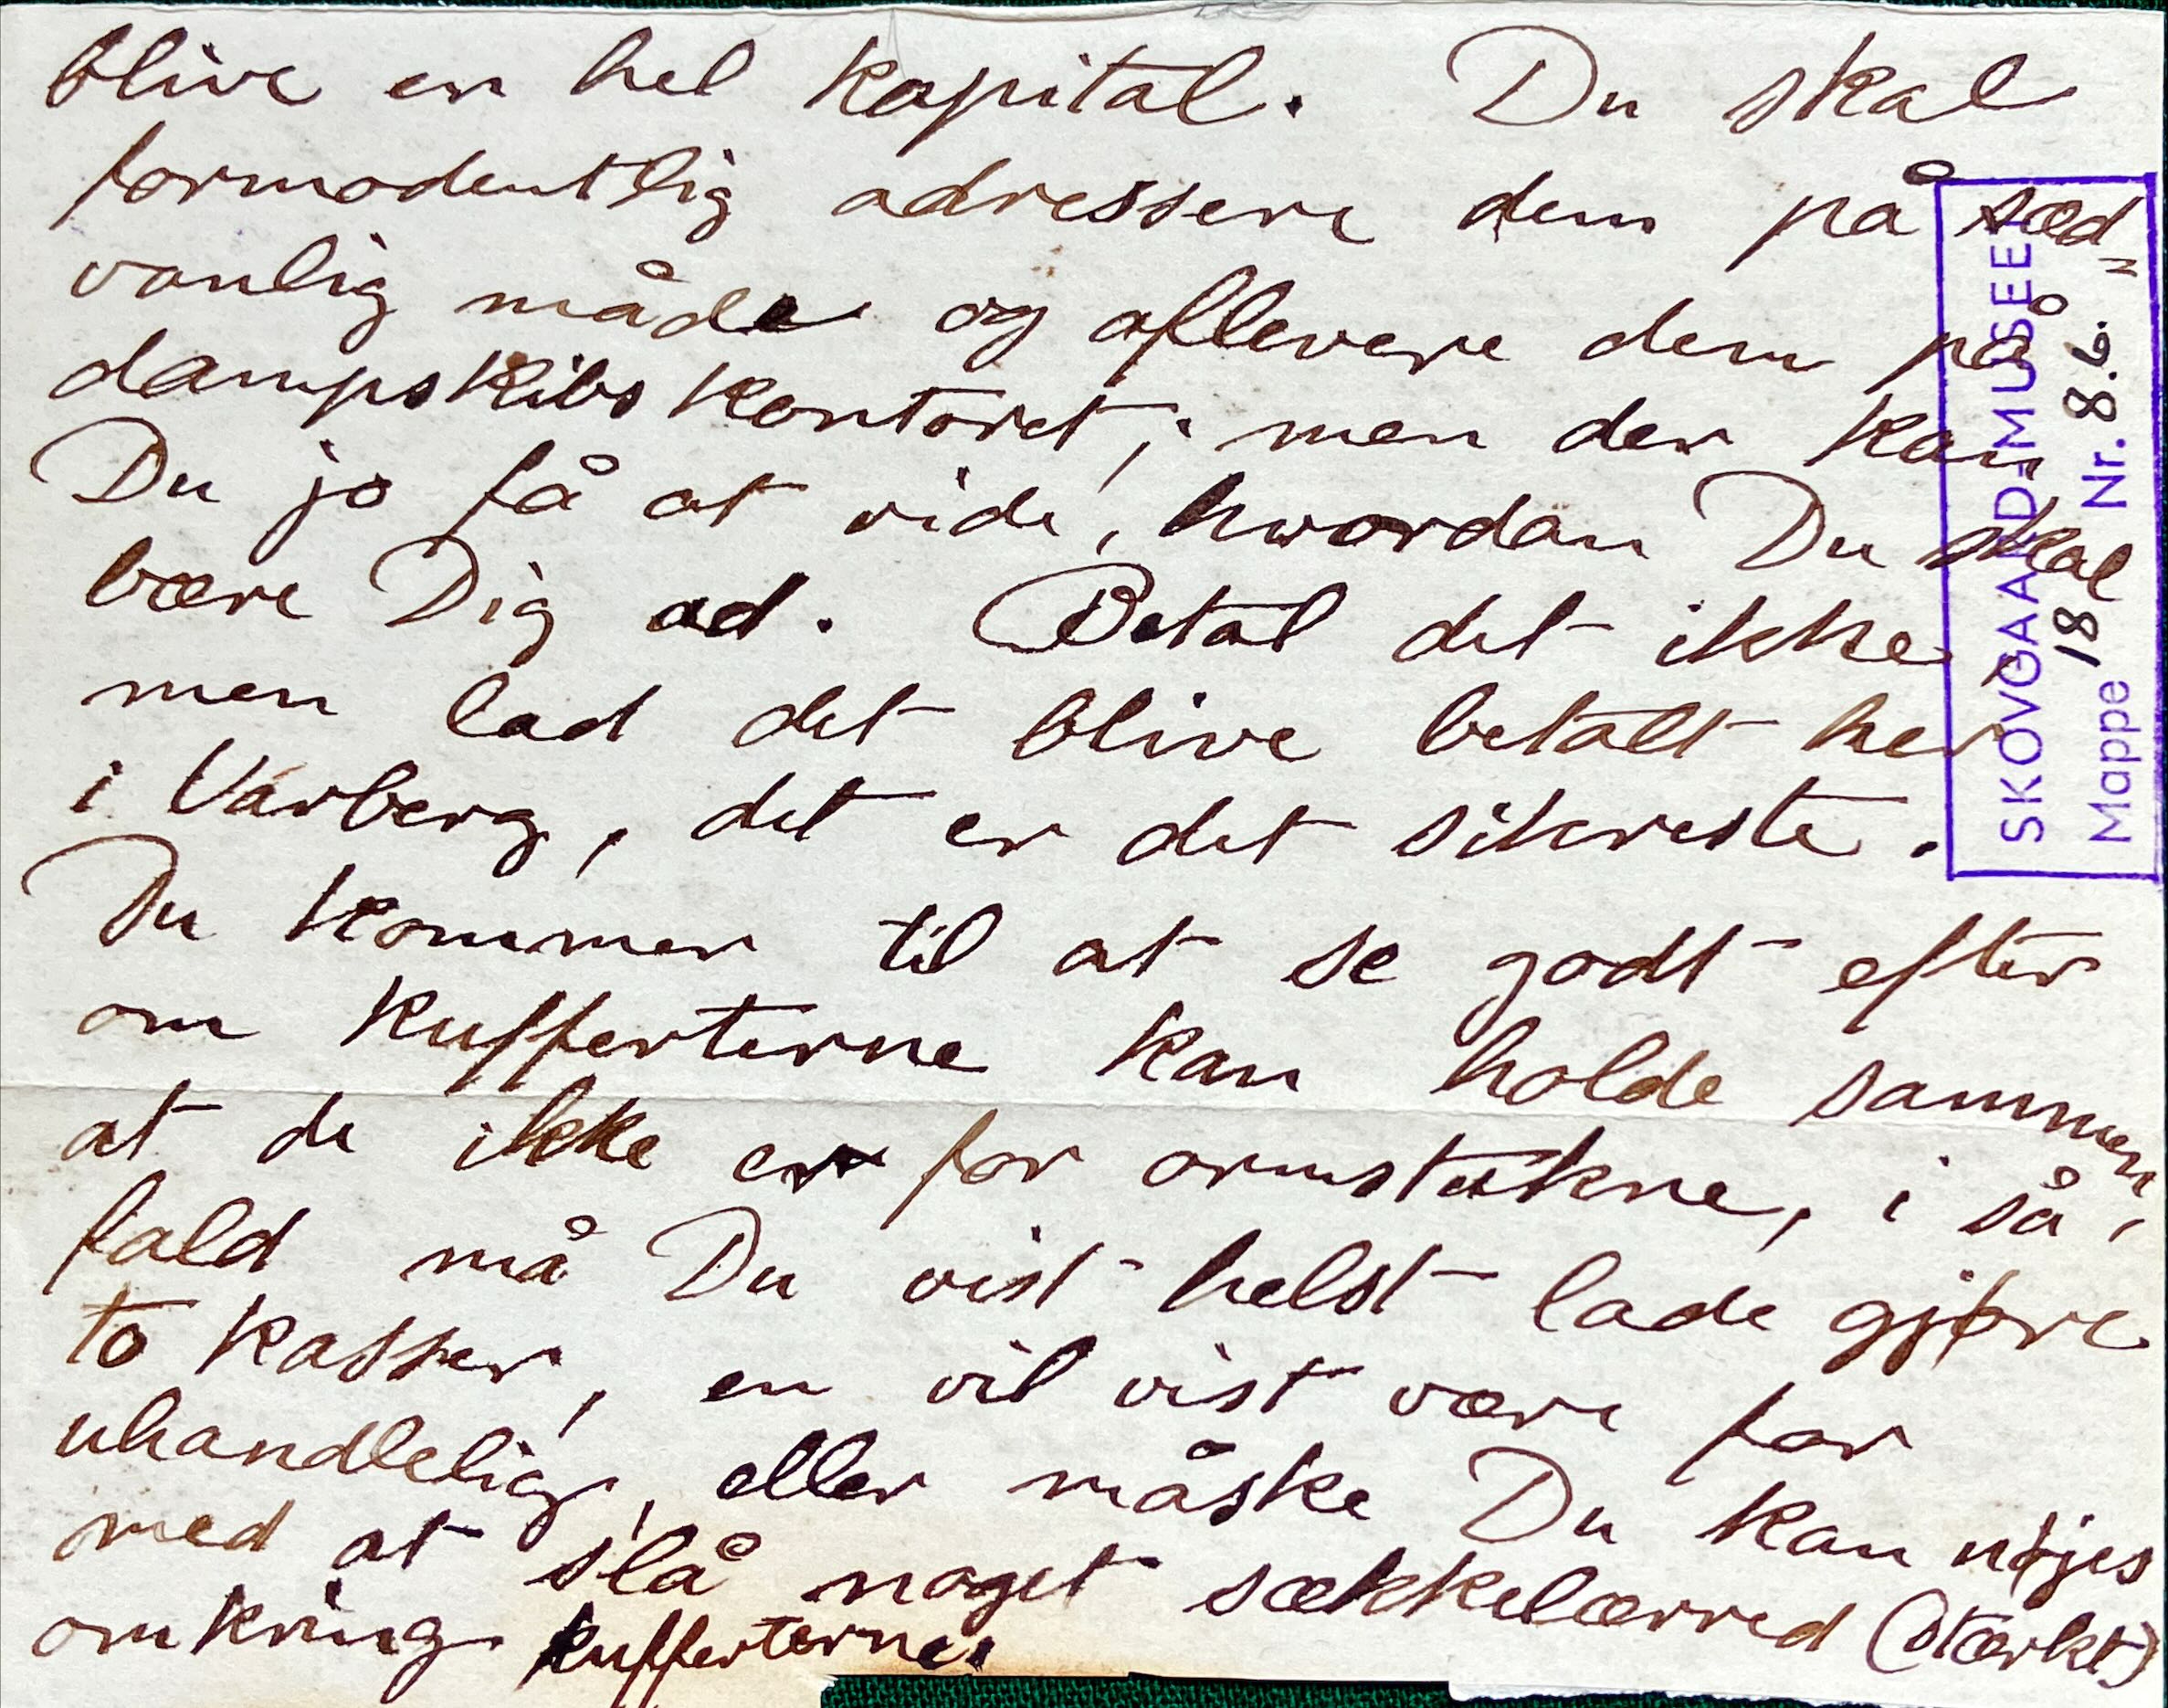 blive en hel kapital. Du skal
formodentlig adressere dem på sæd„
vanlig måde og aflevere dem på
dampskibskontoret; men der kan
Du jo få at vide, hvordan Du skal
bære Dig ad. Betal det ikke,
men lad det blive betalt her
i Varberg, det er det sikreste.
Du kommer til at se godt efter
om kufferterne kan holde sammen,
at de ikke er for ormstukne, i så„
fald må Du vist helst lade gjøre
to kasser, en vil vist være for
uhandlelig, eller måske Du kan nøjes
med at slå noget sækkelærred (stærkt)
omkring kufferterne.
SKOVGAARD-MUSEET
Mappe 18 Nr. 8.b.